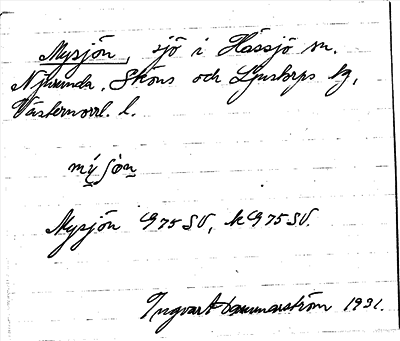 Mysjön, sjö i Hässjö sn.
Njurunda, Sköns och Ljustorps tg,
Västernorrl. l.
mýʃòn
Mysjön G 75 SV, k G 75 SV.
Ingvar Hammarström 1931.